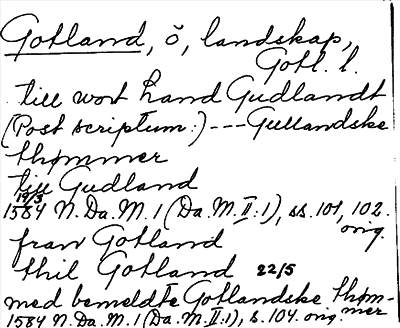 Gotland, ö, landskap,
Gotl. l.
till wort hand Gudlandt
(Post scriptum:) --- Gullandske
thømmer
till Gudland
19/3
1584 N. Da. M. 1 (Da. M. II:1), ss. 101, 102.
orig.
fran Gotland
thil Gotland 22/5
med bemeldte Gotlandske thøm-
mer
1584 N. Da. M. 1 (Da. M. II:1), s. 104. orig.